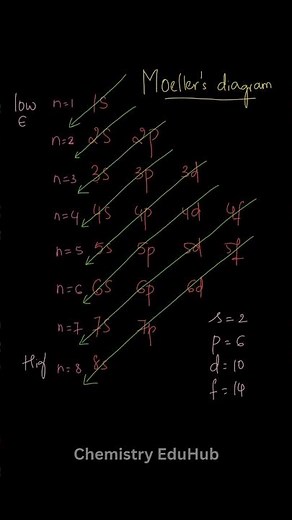 Moeller's diagram
low n=1 1s
E
n=2 2s 2p
n=3 3s 3p 3d
n=4 4s 4p 4d 4f
n=5 5s 5p 5d 5f
n=6 6s 6p 6d
n=7 7s 7p
n=8 8s
s=2
p=6
d=10
f=14
Chemistry EduHub